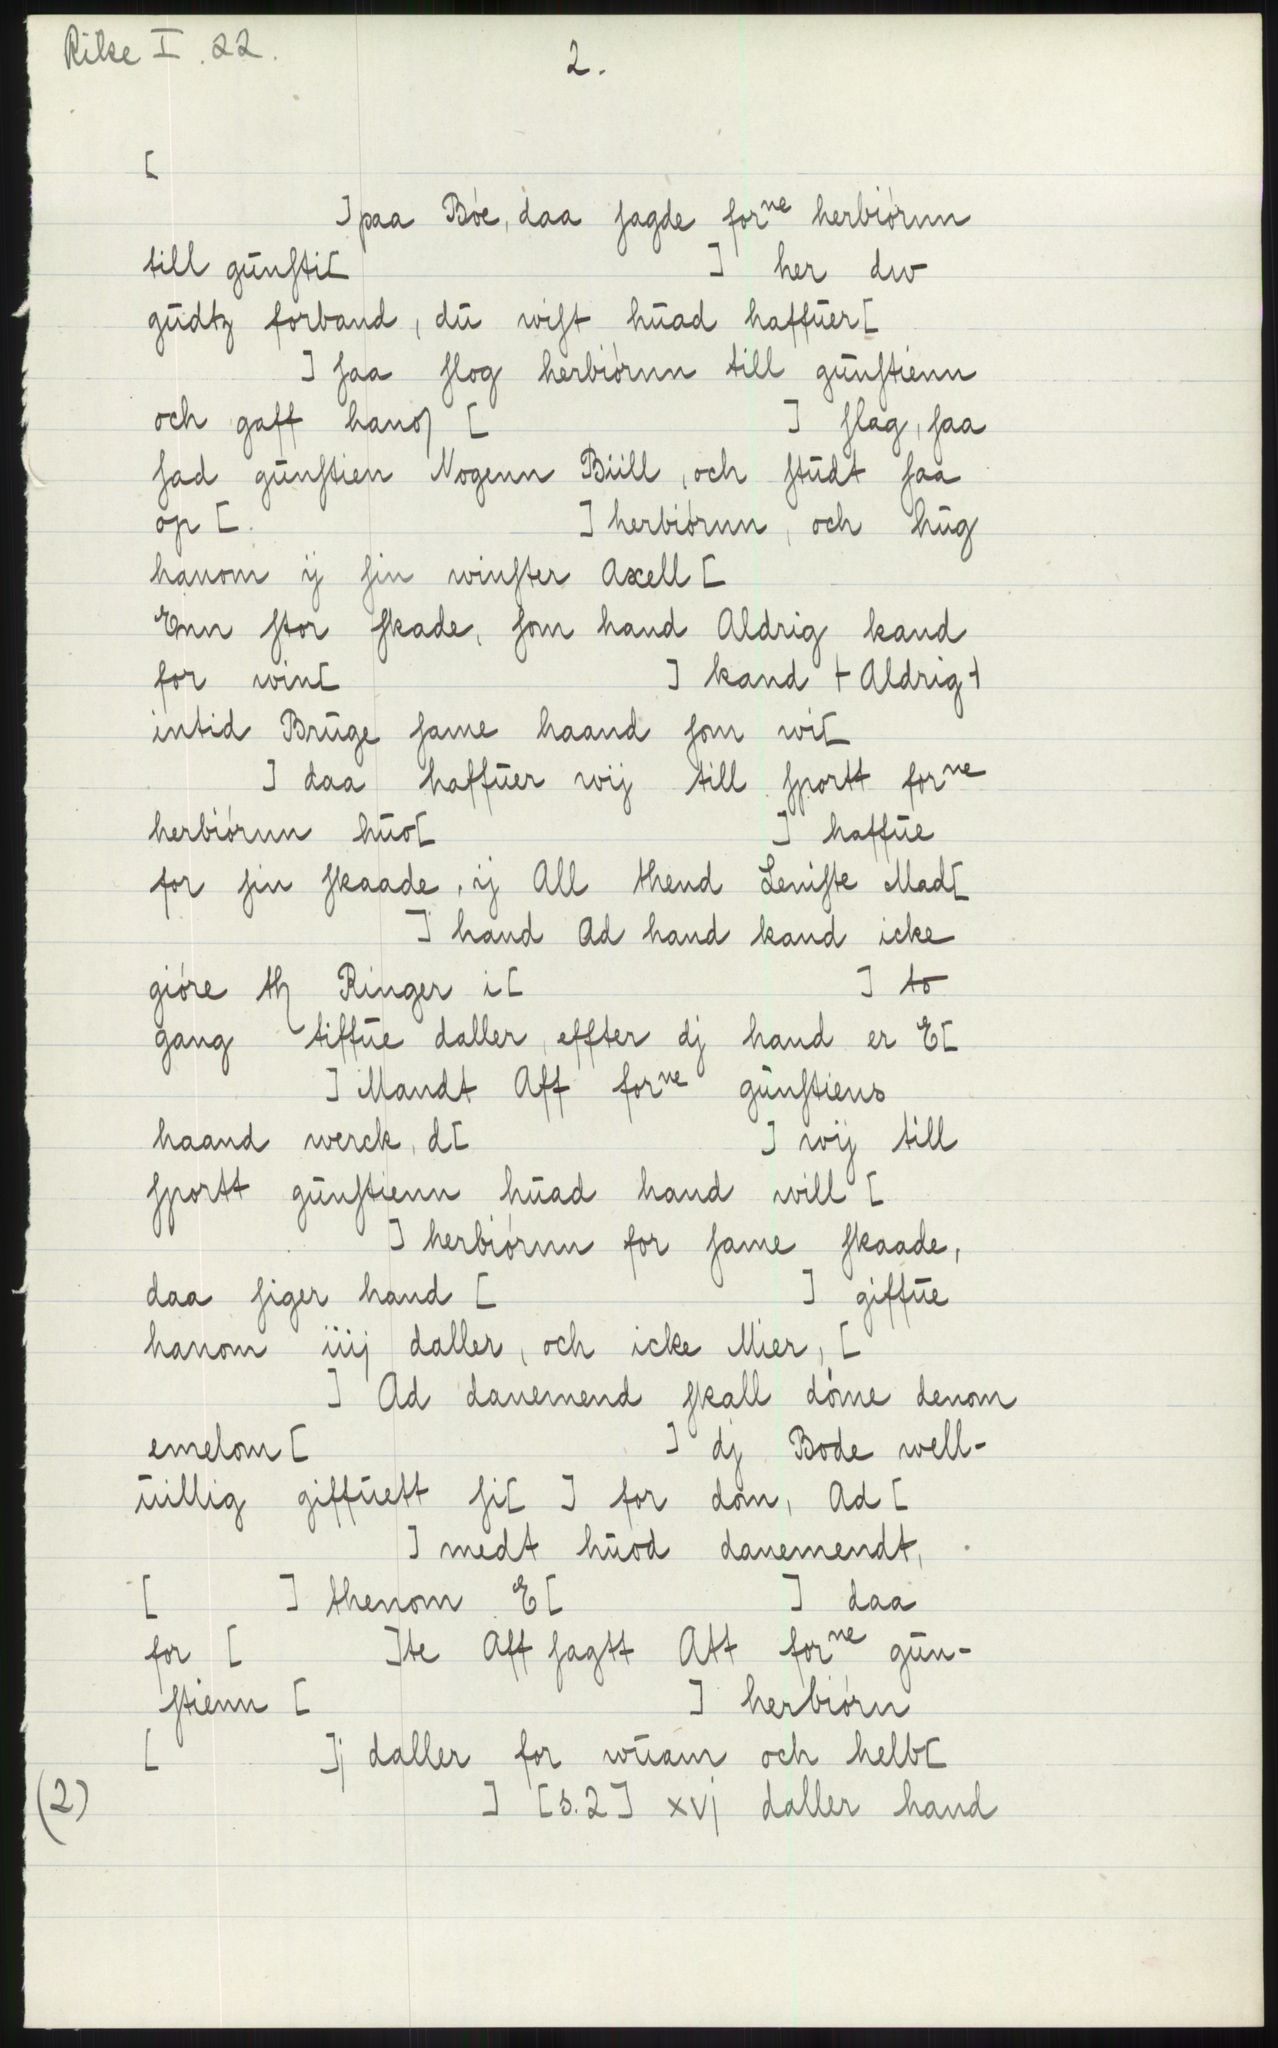 Rike I. 22.
2.
[
] paa Bóe, daa ſagde for^ne herbiórnn
till gūnſti[ ] her dw
gūdtz forband, dū wiſt hūad haffūer[
] ſaa ſlog herbiórnn till gūnſtienn
och gaff hanoɱ [ ] ſlag, ſaa
ſad gūnſtien Nogenn Biill, och ſtūdt ſaa
op [ ] herbiórnn, och hūg
hanom ij ſin winſter Axell [
Enn ſtor ſkade, ſom hand Aldrig kand
for win[ ] kand + Aldrig +
intid Brūge ſame haand ſom wi[
] daa haffūer wij till ſportt for^ne
herbiórnn hūo[ ] haffūe
for ſin ſkaade, ij All thend Leniſte Mad[
] hand Ad hand kand icke
gióre thȝ Ringer i[ ] to
gang tiffūe daller, effter dj hand er E[
] Mandt Aff for^ne gūnſtiens
haand werck, d[ ] wij till
ſportt gūnſtienn hūad hand will [
] herbiórnn for ſame ſkaade,
daa ſiger hand [ ] giffūe
hanom iiij daller, och icke Mier, [
] Ad danemend ſkall dóme denom
emelom [ ] dj Bode well-
ūillig giffūett ſi[ ] for dom, Ad [
] medt hūod danemendt,
[ ] thenom E[ ] daa
for [ ]te Aff ſagtt Att for^ne gūn-
ſtienn [ ] herbiórn
[ ]j daller for wūam och helb[
(2) ] [s.2] xvj daller hand